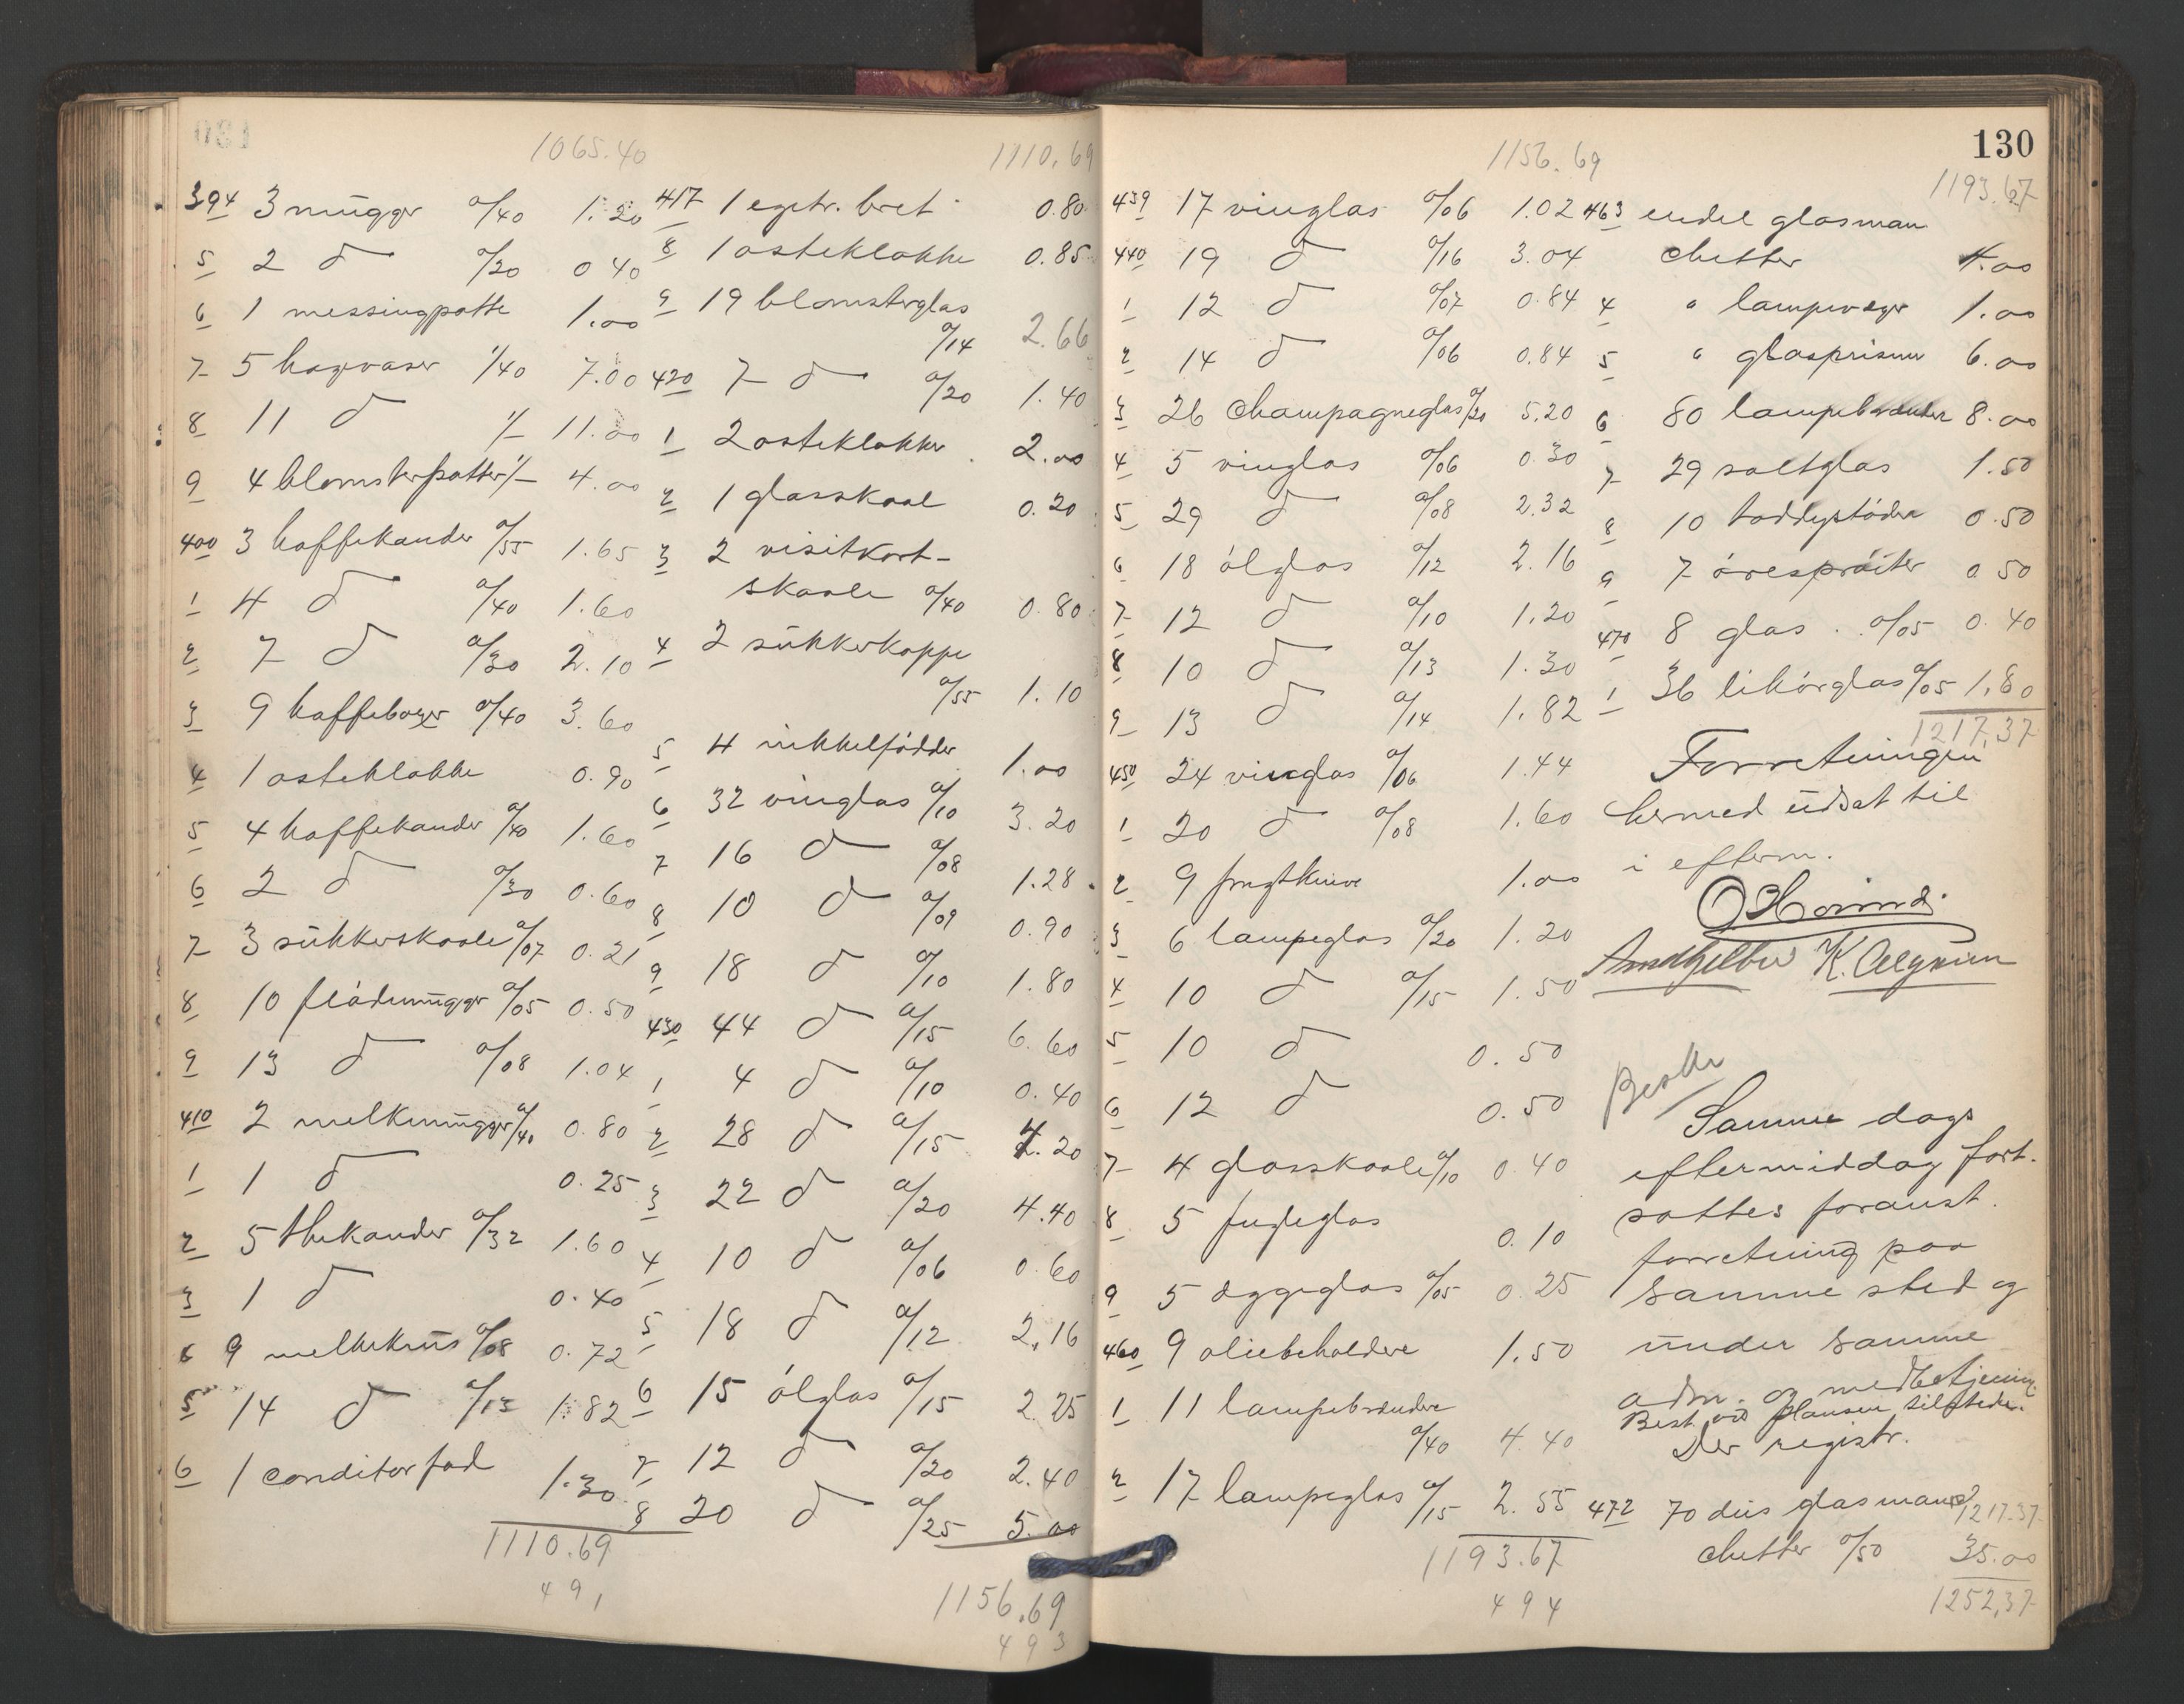 1065.40
394 3 muggor a/40 1.20
5 2 do a/20 0 40
6 1 messingpotte 1.00
7 5 hagvaser 1/40 7.00
8 11 do 1/- 11.00
9 4 blomsterpotter 1/- 4.00
400 3 kaffekander a/55 1.65
1 4 do a/40 1.60
2 7 do a/30 2.10
3 9 kaffeboxer a/40 3.60
4 1 osteklokke 0.90
5 4 kaffekander a/40 1.60
6 2 do a/30 0.60
7 3 sukkerskaale a/07 0.21
8 10 flödemugger a/05 0.50
9 13 do a/08 1.04
410 2 melkemugger a/40 0.80
1 1 do 0.25
2 5 thekander a/32 1.60
3 1 do 0.40
4 9 melkekrus a/08 0.72
5 14 do a/13 1.82
6 1 conditorfad 1.30
1110.69
491
1110.69
417 1 egetr. bret 0.80
8 1 osteklokke 0.85
9 19 blomsterglas
a/14 2.66
420 7 do a/20 1.40
1 2 osteklokker 2.00
2 1 glasskaal 0.20
3 2 visitkort-
skaale a/40 0.80
4 2 sukkerkoppe
a/55 1.10
5 4 nikkelfödder 1.00
6 32 vinglas a/10 3.20
7 16 do a/08 1.28
8 10 do a/09 0.90
9 18 do a/10 1.80
430 44 do a/15 6.60
1 4 do a/10 0.40
2 28 do a/15 4.20
3 22 do a/20 4.40
4 10 do a/06 0.60
5 18 do a/12 2.16
6 15 ölglas a/15 2.25
7 12 do a/20 2.40
8 20 do a/25 5.00
1156.69
493
130
1156.69
439 17 vinglas a/06 1.02
440 19 do a/16 3.04
1 12 do a/07 0.84
2 14 do a/06 0.84
3 26 champagneglas a/20 5.20
4 5 vinglas a/06 0.30
5 29 do a/08 2.32
6 18 ölglas a/12 2.16
7 12 do a/10 1.20
8 10 do a/13 1.30
9 13 do a/14 1.82
450 24 vinglas a/06 1.44
1 20 do a/08 1.60
2 9 frugtknive 1.00
3 6 lampeglas a/20 1.20
4 10 do a/15 1.50
5 10 do 0.50
6 12 do 0.50
7 4 glasskaale a/10 0.40
8 5 fugleglas 0.10
9 5 æggeglas a/05 0.25
460 9 oliebeholdere 1.50
1 11 lampebrændere
a/40 4.40
2 17 lampeglas a/15 2.55
1193.67
494
1193.67
463 endel glasman
chetter 4.00
4 " lampevæger 1.00
5 " glasprismer 6.00
6 80 lampebrændere 8.00
7 29 saltglas 1.50
8 10 toddystödere 0.50
9 7 öresprøiter 0 50
470 8 glas a/05 0.40
1 36 likörglas a/05 1.80
1217.37
Forretningen
hermed udsat til
i efterm.
Samme dags
eftermiddag fort-
sattes foranst.
forretning paa
samme sted og
under samme
adm. og medbetjening.
Best. ved Hansen tilstede.
Der registr.
472 70 dus glasman 1217.37
chetter a/50 35.00
1252.37